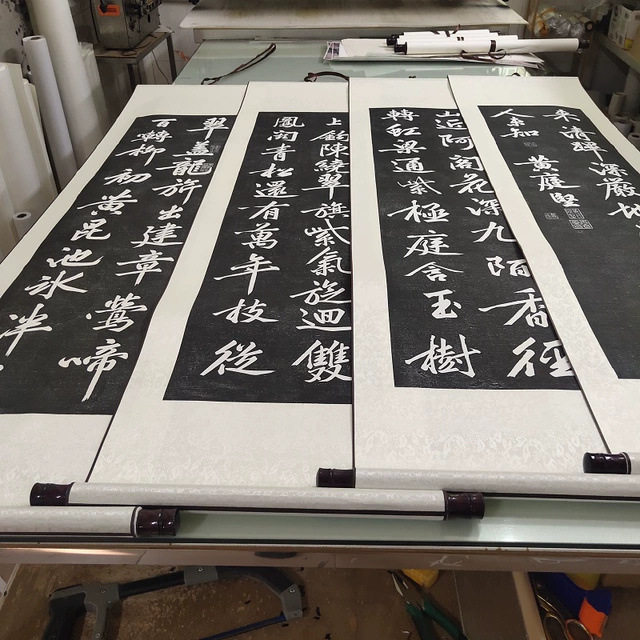 翠蓋龍旂出建章鶯啼
百轉柳初黃昆池冰泮
上鈎陳繞翠旗紫氣旋迴雙
鳳闕青松還有萬年枝從
山阿閣花深九陌香徑
轉虹梁通紫極庭含玉樹
来清蹕深嚴地
人未知 黃庭堅